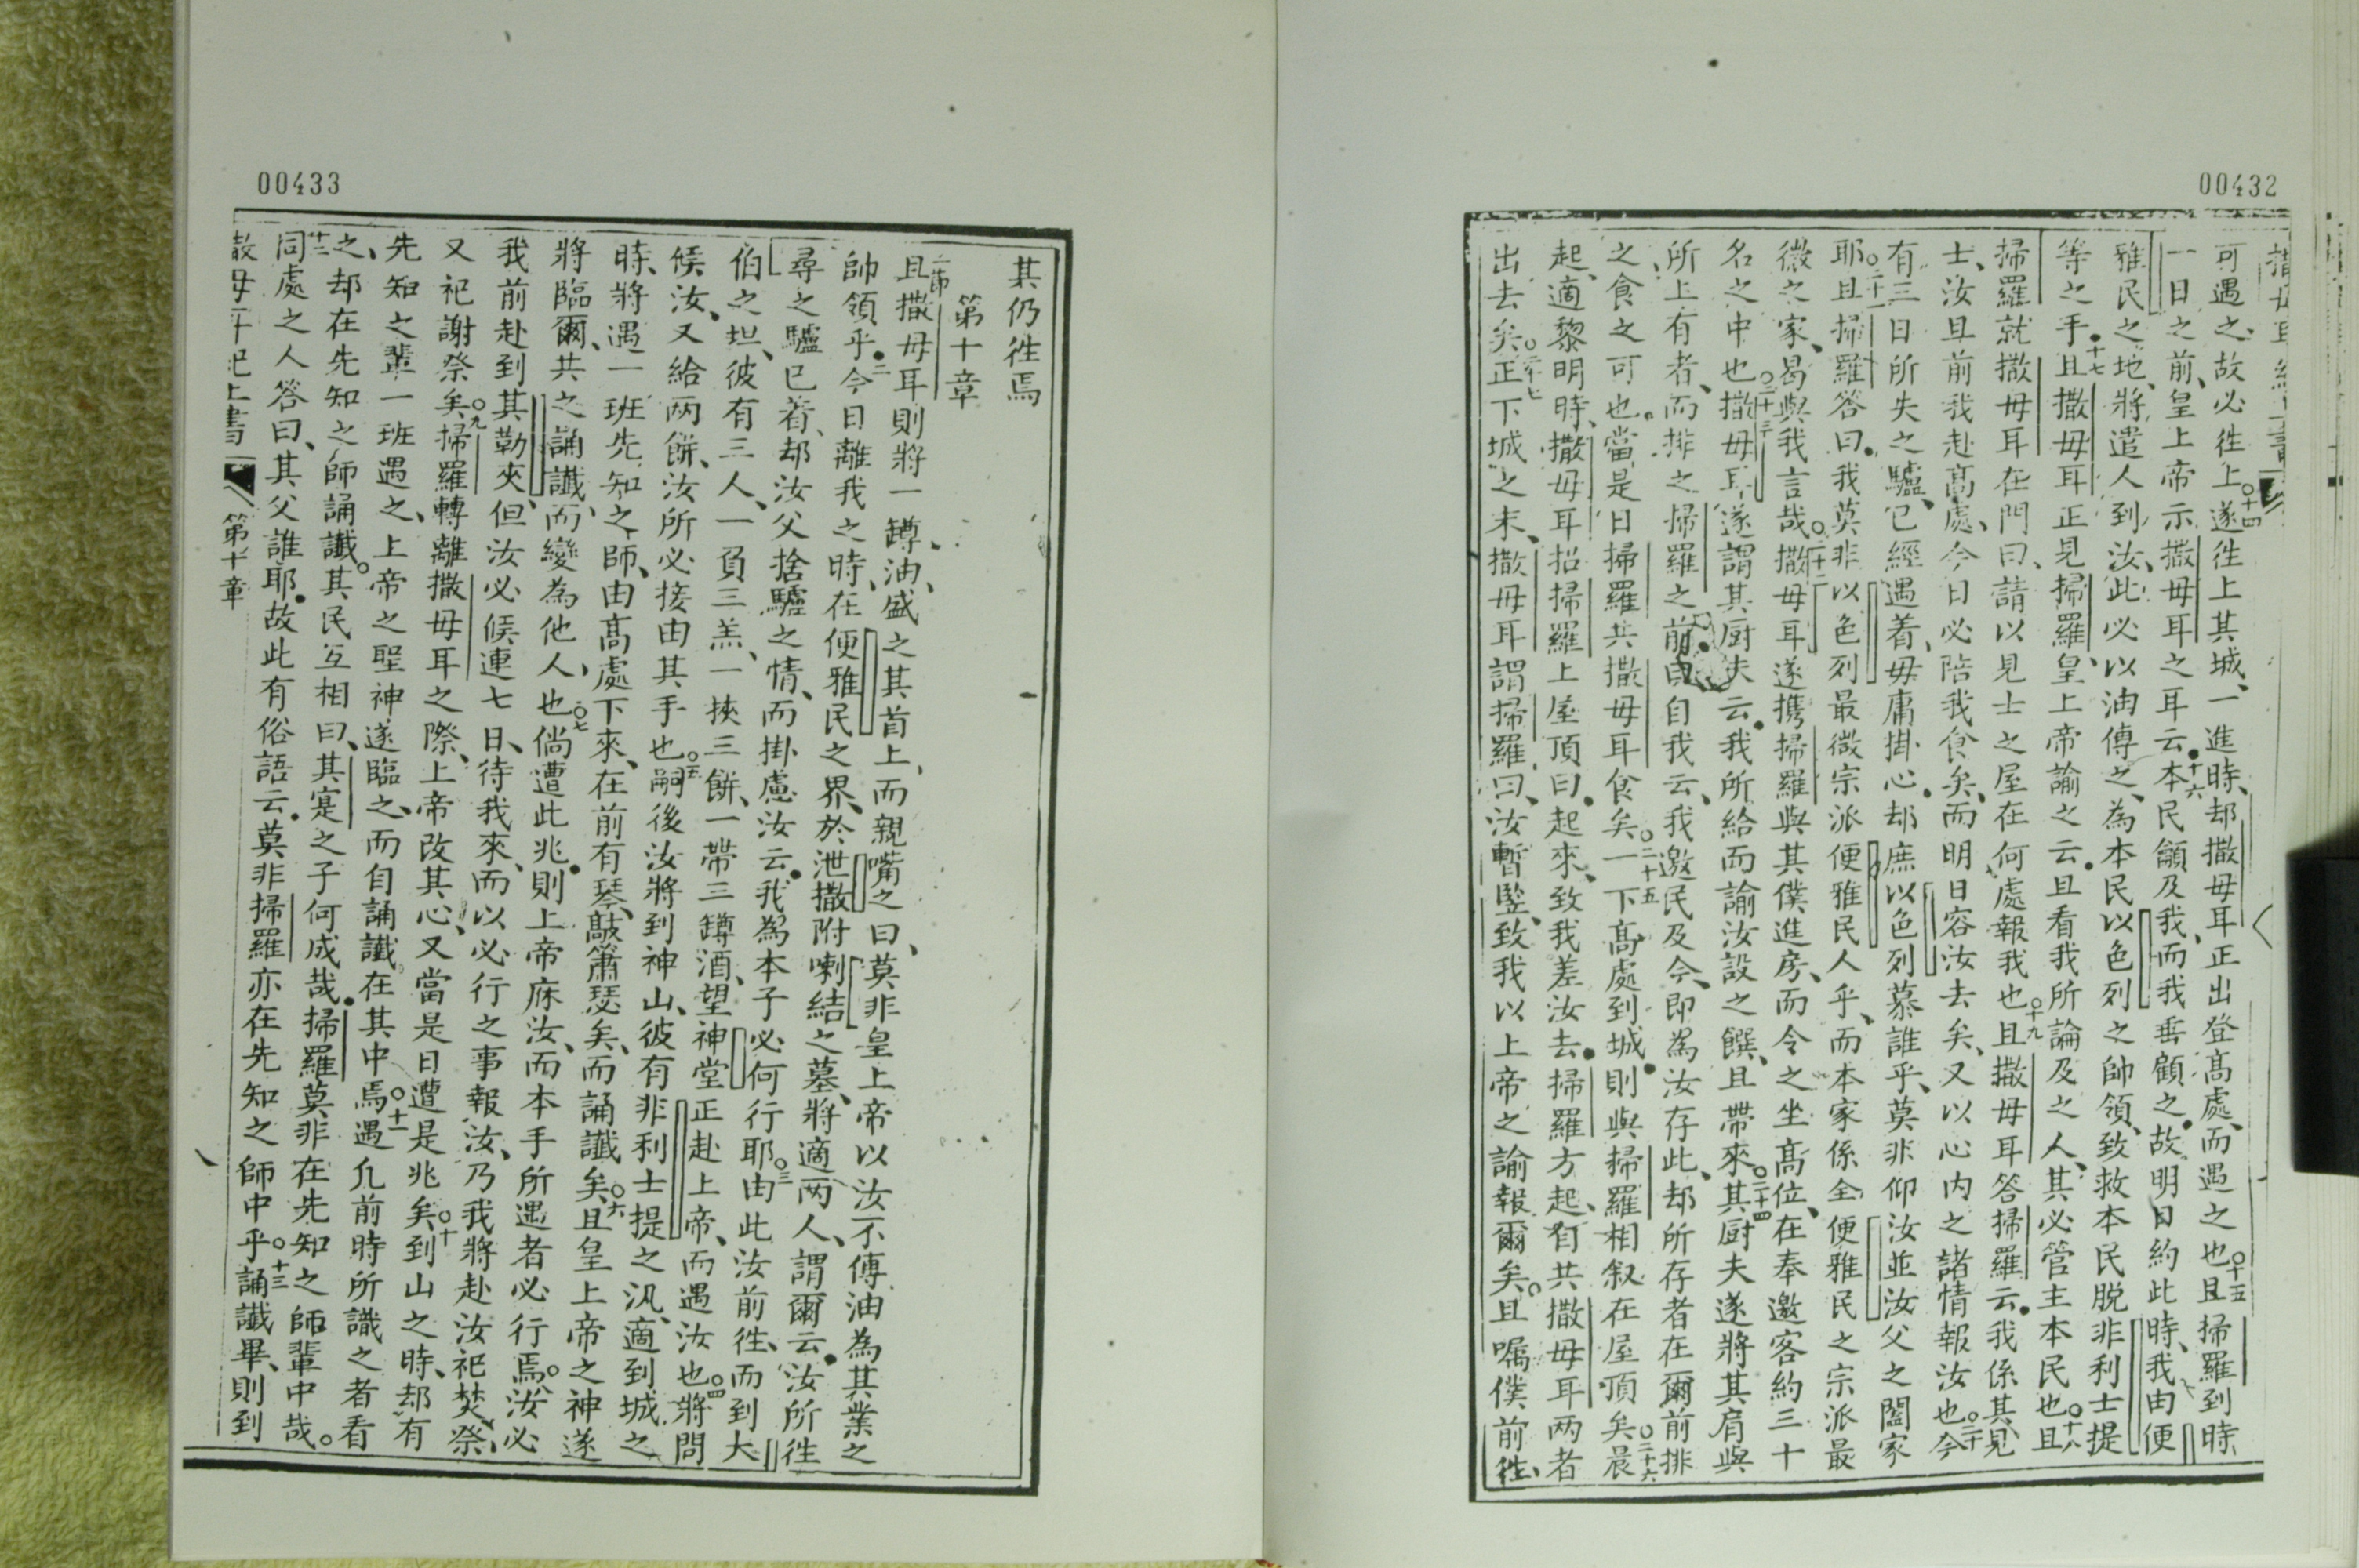 00432
可遇之故必徃上○十四遂徃上其城、一進時、却撒母耳正出登高處、而遇之也○十五且掃羅到時、
一日之前、皇上帝示撒母耳之耳云●十六本民籲及我、而我垂顧之、故明日約此時、我由便
雅民之地、將遣人到汝、此必以油傅之、為本民以色列之帥領、致救本民脫非利士提
等之手●十七且撒母耳正見掃羅、皇上帝諭之云●且看我所論及之人、其必管主本民也○十八且
掃羅就撒母耳在門曰、請以見士之屋在何處報我也○十九且撒母耳答掃羅云●我係其見
士、汝且前我赴高處、今日必陪我食矣、而明日容汝去矣、又以心內之諸情報汝也○二十今
有三日所失之驢、已經遇着、毋庸掛心●却庶以色列慕誰乎、莫非仰汝並汝父之闔家
耶○二十一且掃羅答曰●我莫非以色列最微宗派便雅民人乎、而本家係全便雅民之宗派最
微之家、曷與我言哉○二十二撒母耳遂携掃羅與其僕進房、而令之坐高位、在奉邀客約三十
名之中也○二十三撒母耳遂謂其厨夫云●我所給而諭汝設之饌、且帶來○二十四其厨夫遂將其肩與
所上有者、而排之掃羅之前●自我云、我邀民及今、即為汝存此、却所存者在爾前排
之、食之可也●當是日掃羅共撒母耳食矣○二十五一下高處到城●則與掃羅相叙在屋頂矣○二十六晨
起、適黎明時、撒母耳招掃羅上屋頂曰●起來、致我差汝去●掃羅方起、有共撒母耳両者
出去矣○二十七正下城之末、撒母耳謂掃羅曰、汝暫竪、致我以上帝之諭報爾矣○且嘱僕前徃、
00433
其仍徃焉
第十章
一節且撒母耳則將一罇油、盛之其首上、而親嘴之曰、莫非皇上帝以汝不傅油為其業之
帥領乎●二今日離我之時、在便雅民之界、於泄撒附喇結之墓、將適両人、謂爾云●汝所徃
尋之驢已着、却汝父捨驢之情、而掛慮汝云●我為本子必何行耶○三由此汝前徃、而到大
伯之坦、彼有三人、一負三羔、一挾三餅、一帶三罇酒、望神堂正赴上帝、而遇汝也○四將問
候汝、又給両餅、汝所必接由其手也○五嗣後汝將到神山、彼有非利士提之汛、適到城之
時、將遇一班先知之師、由高處下來、在前有琴、敲簫瑟矣、而誦讖矣○六且皇上帝之神遂
將臨爾、共之誦讖、而變為他人、也○七倘遭此兆●則上帝庥汝、而本手所遇者必行焉○八汝必
我前赴到其勒夾、但汝必候連七日、待我來、而以必行之事報汝、乃我將赴汝祀焚祭、
又祀謝祭矣○九掃羅轉離撒母耳之際、上帝改其心、又當是日遭是兆矣○十到山之時、却有
先知之輩一班遇之、上帝之聖神遂臨之、而自誦讖在其中焉○十一遇凢前時所識之者看
之、却在先知之師誦讖○其民互相曰、其寔之子何成哉●掃羅莫非在先知之師輩中哉○
十二同處之人答曰、其父誰耶●故此有俗語云●莫非掃羅亦在先知之師中乎○十三誦讖畢、則到
撒母耳紀上書 第十章